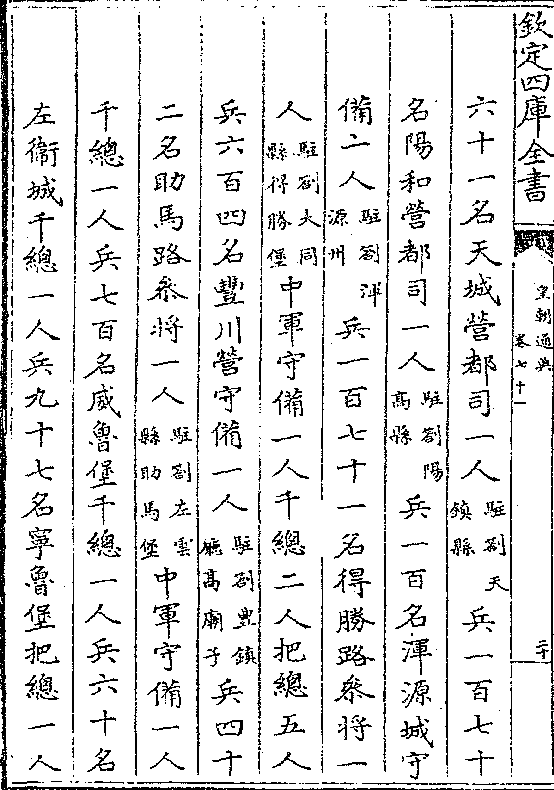 欽定四庫全書
皇朝通典
卷七十一
二十
六十一名天城營都司一人駐劄天鎮縣兵一百七十
名陽和營都司一人駐劄陽高縣兵一百名渾源城守
備二人駐劄渾源州兵一百七十一名得勝路叅將一
人駐劄大同縣得勝堡中軍守備一人千總二人把總五人
兵六百四名豐川營守備一人駐劄豐鎮廳高廟子兵四十
二名助馬路叅將一人駐劄左雲縣助馬堡中軍守備一人
千總一人兵七百名威魯堡千總一人兵六十名
左衞城千總一人兵九十七名寧魯堡把總一人